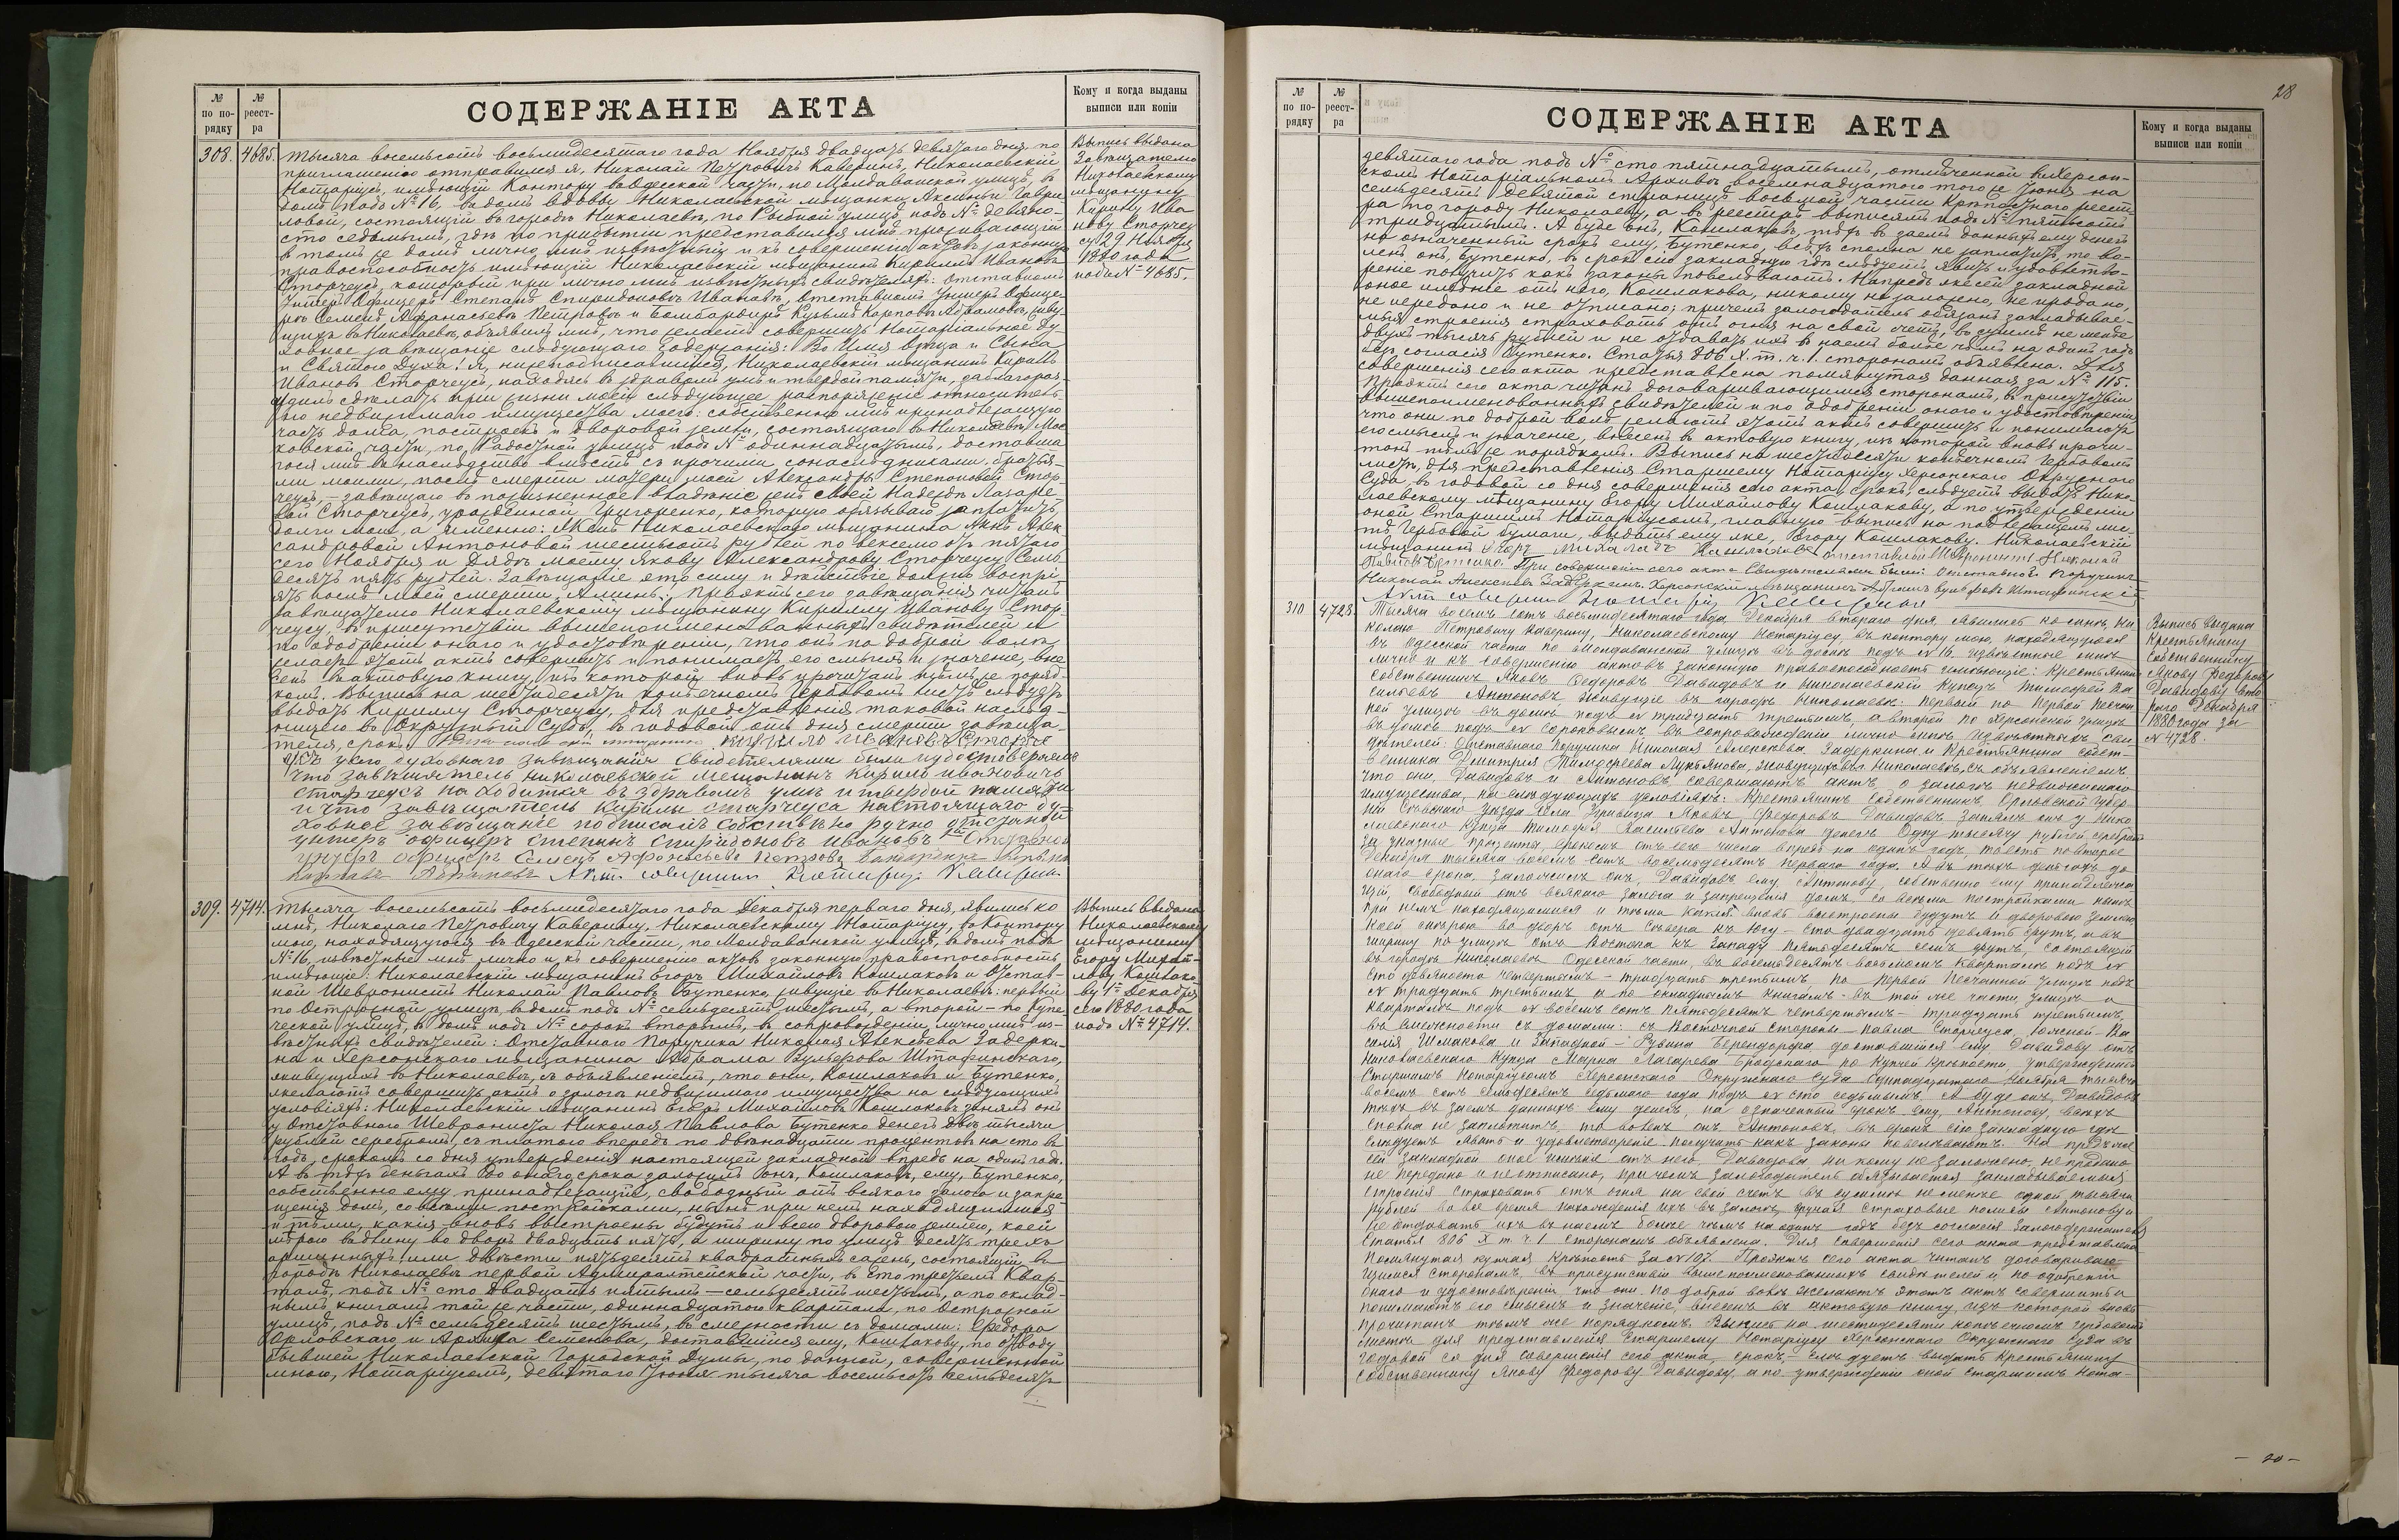 № по по-рядку
№ реест-ра
СОДЕРЖАНІЕ АКТА
Кому и когда выданы выписи или копіи
308. 4685. Тысяча восемьсотъ восьмидесятаго года Ноября двадцать девятаго дня, по
приглашенію отправился я, Николай Петровичъ Каверинъ, Николаевскій
Нотаріусъ, имѣющій Контору въ Одесской части, по Молдаванской улицѣ, въ
домѣ подъ № 16, въ домъ вдовы Николаевской мѣщанки Аксиньи Гаври-
ловой, состоящій въ городѣ Николаевѣ, по Рыбной улицѣ, подъ № девяно-
сто седьмымъ, гдѣ по прибытіи представился мнѣ проживающій
въ томъ же домѣ лично мнѣ извѣстный и къ совершенію актовъ законную
правоспособность имѣющій Николаевскій мѣщанинъ Кириллъ Ивановъ
Сторчеусъ, который при лично мнѣ извѣстныхъ свидѣтеляхъ: Отставномъ
Унтеръ Офицерѣ Степанѣ Спиридоновѣ Ивановѣ, Отставномъ Унтеръ Офице-
рѣ Семенѣ Афанасьевѣ Петровѣ и Бомбардирѣ Кузьмѣ Карповѣ Абрамовѣ, живу-
щихъ въ Николаевѣ, объявилъ мнѣ, что желаетъ совершить нотаріальное Ду-
ховное завѣщаніе слѣдующаго содержанія: Во Имя Отца и Сына
и Святаго Духа! Я, нижеподписавшійся, Николаевскій мѣщанинъ Кириллъ
Ивановъ Сторчеусъ, находясь въ здравомъ умѣ и твердой памяти, заблагораз-
судилъ сдѣлать при жизни моей слѣдующее распоряженіе относитель-
но недвижимаго имущества моего: собственно мнѣ принадлежащую
часть дома, построекъ и дворовой земли, состоящаго въ Николаевѣ, Мос-
ковской части, по Радостной улицѣ подъ № одиннадцатымъ, доставша-
гося мнѣ въ наслѣдство вмѣстѣ съ прочими сонаслѣдниками, братья-
ми моими, послѣ смерти матери моей Александры Степановой Стор-
чеусъ, – завѣщаю въ пожизненное владѣніе женѣ своей Надеждѣ Лазаре-
вой Сторчеусъ, урожденной Григоренко, которую обязываю заплатить
долги мои, а именно: женѣ Николаевскаго мѣщанина Аннѣ Алек-
сандровой Антоновой шестьсотъ рублей по векселю отъ пятаго
сего Ноября и Дядѣ моему Якову Александрову Сторчеусу Семь-
десятъ пять рублей. Завѣщаніе это силу и дѣйствіе должно воспрі-
ять послѣ моей смерти. Аминь. Проэктъ сего завѣщанія читанъ
завѣщателю Николаевскому мѣщанину Кириллу Иванову Стор-
чеусу, въ присутствіи вышепоименованныхъ свидѣтелей и
по одобреніи онаго и удостовѣреніи, что онъ по доброй волѣ
желаетъ этотъ актъ совершить и понимаетъ его смыслъ и значеніе, вне-
сенъ въ актовую книгу, изъ которой вновь прочитанъ тѣмъ же поряд-
комъ. Выпись на шестидесяти копѣечномъ Гербовомъ листѣ слѣдуетъ
выдать Кириллу Сторчеусу, для представленія таковой наслѣд-
ницею въ Окружный Судъ, въ годовой отъ дня смерти завѣща-
теля, срокъ. Кирило Ивановъ Старче-
усъ у сего духовнаго завѣщанія Свидѣтелями были и удостовѣряемъ
что завѣщатель николаевской мещанинъ Кирило ивановичъ
старчеусъ находится въ здравомъ умѣ и твердой памяти
и что завѣщатель Кирилы старчеуса настоящаго ду-
ховное завѣщаніе подписалъ собственно ручно отставной
унтеръ офицеръ степанъ спиридоновъ ивановъ Отставной
унтеръ офицеръ Семенъ Афонасьевъ Петровъ
Абрамовъ Актъ совершилъ Нотаріусъ Каверинъ
Выпись выдана
Завѣщателю
Николаевскому
мѣщанину
Кирилу Ива-
нову Сторче-
усу 29 Ноября
1880 года
подъ № 4685.
309. 4714. Тысяча восемьсотъ восьмидесятаго года Декабря перваго дня, явились ко
мнѣ, Николаю Петровичу Каверину, Николаевскому Нотаріусу, въ Контору
мою, находящуюся въ Одесской части, по Молдаванской улицѣ, въ домѣ подъ
№ 16, извѣстные мнѣ лично и къ совершенію актовъ законную правоспособность
имѣющіе: Николаевскій мѣщанинъ Егоръ Михайловъ Кошлаковъ и Отстав-
ной Шевронистъ Николай Павловъ Бутенко, живущіе въ Николаевѣ: первый
по Острожной улицѣ, въ домѣ подъ № семьдесятъ шестымъ, а второй – по Купе-
ческой улицѣ, въ домѣ подъ № сорокъ вторымъ, въ сопровожденіи лично мнѣ из-
вѣстныхъ свидѣтелей: Отставнаго Поручика Николая Алексѣева Задерки-
на и Херсонскаго мѣщанина Абрама Вульфова Штафинскаго,
живущихъ въ Николаевѣ, съ объявленіемъ, что они, Кошлаковъ и Бутенко,
желаютъ совершить актъ о залогѣ недвижимаго имущества на слѣдующихъ
условіяхъ: Николаевскій мѣщанинъ Егоръ Михайловъ Кошлаковъ занялъ онъ
у Отставнаго Шеврониста Николая Павлова Бутенко денегъ двѣ тысячи
рублей серебромъ, съ платою впередъ по двѣнадцати процентовъ на сто въ
годъ, срокомъ со дня утвержденія настоящей закладной впредь на одинъ годъ.
А въ тѣхъ деньгахъ до онаго срока заложилъ онъ, Кошлаковъ, ему, Бутенко,
собственно ему принадлежащій, свободный отъ всякаго залога и запре-
щенія домъ, со всѣми постройками, нынѣ при немъ находящимися
и тѣми, какія вновь выстроены будутъ и всею дворовою землею, коей
мѣрою въ длину во дворъ двадцать пять, а ширину по улицѣ десять трехъ
аршинныхъ, или двѣсти пятьдесятъ квадратныхъ саженъ, состоящій въ
городѣ Николаевѣ первой Адмиралтейской части, въ сто третьемъ Квар-
талѣ, подъ № сто двадцать пятымъ – семьдесятъ шестымъ, а по оклад-
нымъ книгамъ той же части, одиннадцатаго квартала, по Острожной
улицѣ, подъ № семьдесятъ шестымъ, въ смежности съ домами: Федора
Орловскаго и Архипа Семенова, доставшійся ему, Кошлакову, по отводу
бывшей Николаевской Городской Думы, по данной, совершенной
мною, Нотаріусомъ, девятаго Іюня тысяча восемьсотъ семьдесятъ
Выпись выдана
Николаевскому
мѣщанину
Егору Михай-
лову Кошлако-
ву 1го Декабря
сего 1880 года
подъ № 4714.
28
№ по по-рядку
№ реест-ра
СОДЕРЖАНІЕ АКТА
Кому и когда выданы выписи или копіи
девятаго года подъ № сто пятнадцатымъ, отмѣченной въ Херсон-
скомъ Нотаріальномъ Архивѣ восемнадцатаго того же Іюня на
семьдесятъ девятой страницѣ восьмой части крѣпостнаго реест-
ра по городу Николаеву, а въ реестрѣ выписямъ подъ № пятьсотъ
тридцатымъ. А буде онъ, Кошлаковъ, тѣхъ въ заемъ данныхъ ему денегъ
на означенный срокъ ему, Бутенко, всѣхъ сполна не заплатитъ, то во-
ленъ онъ, Бутенко, въ срокъ сію закладную гдѣ слѣдуетъ явить и удовлетво-
реніе получить какъ законы повелѣваютъ. Напредъ же сей закладной
оное имѣніе отъ него, Кошлакова, никому не заложено, не продано,
не передано и не отписано; причемъ залогодатель обязанъ закладывае-
мыя строенія страховать отъ огня на свой счетъ, въ суммѣ не менѣе
двухъ тысячъ рублей и не отдавать ихъ въ наемъ болѣе чѣмъ на одинъ годъ
безъ согласія Бутенко. Статья 806 X т. ч. 1. сторонамъ объявлена. Для
совершенія сего акта представлена помянутая данная за № 115.
Проэктъ сего акта читанъ договаривающимся сторонамъ, въ присутствіи
вышепоименованныхъ свидѣтелей и по одобреніи онаго и удостовѣреніи,
что они по доброй волѣ желаютъ этотъ актъ совершить и понимаютъ
его смыслъ и значеніе, внесенъ въ актовую книгу, изъ которой вновь прочи-
танъ тѣмъ же порядкомъ. Выпись на шестидесяти копѣечномъ Гербовомъ
листѣ, для представленія Старшему Нотаріусу Херсонскаго Окружнаго
Суда, въ годовой со дня совершенія сего акта, срокъ, слѣдуетъ выдать Нико-
лаевскому мѣщанину Егору Михайлову Кошлакову, а по утвержденіи
оной Старшимъ Нотаріусомъ, главную выпись на подлежащемъ лис-
тѣ Гербовой бумаги, выдать ему же, Егору Кошлакову. Николаевскій
мѣщанинъ Егоръ Михаловъ Кашлаковъ отставной Шевронистъ Николай
Павловъ Бутенко. При совершеніи сего акта Свидѣтелями были: Отставной Поручикъ
Николай Алексѣевъ Задеркинъ. Херсонскій мѣщанинъ Абрамъ Вульфовъ Штафинскій
Актъ совершилъ Нотаріусъ Каверинъ
310 4728. Тысяча восемь сотъ восьмидесятаго года, Декабря втораго дня, явились ко мнѣ, Ни-
колаю Петровичу Каверину, Николаевскому Нотаріусу, въ контору мою, находящуюся
въ Одесской части по Молдаванской улицѣ въ домѣ подъ № 16 извѣстные мнѣ
лично и къ совершенію актовъ законную правоспособность имѣющіе: Крестьянинъ
собственникъ Яковъ Федоровъ Давидовъ и Николаевскій Купецъ Тимофей Ва-
сильевъ Антоновъ живущіе въ городѣ Николаевѣ: первый по Первой Песчан-
ной улицѣ въ домѣ подъ № тридцать третьимъ, а второй по Херсонской улицѣ
въ домѣ подъ № сороковымъ, въ сопровожденіи лично мнѣ извѣстныхъ сви-
дѣтелей: Отставнаго Поручика Николая Алексѣева Задеркина и Крестьянина собст-
венника Дмитрія Тимофеева Лукьянова, живущихъ въ Николаевѣ, съ объявленіемъ,
что они, Давидовъ и Антоновъ совершаютъ актъ о залогѣ недвижимаго
имущества, на слѣдующихъ условіяхъ: Крестьянинъ Собственникъ, Орловской Губер-
ніи Сѣвскаго Уѣзда Села Яковъ Федоровъ Давидовъ занялъ онъ у Нико-
лаевскаго Купца Тимофея Васильева Антонова денегъ Одну тысячу рублей серебромъ
за указные проценты, срокомъ отъ сего числа впредь на одинъ годъ, то есть по второе
Декабря тысяча восемь сотъ восемьдесятъ перваго года. А въ тѣхъ деньгахъ до
онаго срока, заложилъ онъ, Давидовъ ему Антонову, собственно ему принадлежа-
щій, свободный отъ всякаго залога и запрещенія домъ, со всѣми постройками нынѣ
при немъ находящимися и тѣми какія вновь выстроены будутъ и дворовою землею
коей мѣрою во дворъ отъ Сѣвера къ Югу – сто двадцать девять футъ, а въ
ширину по улицѣ отъ Востока къ Западу пятьдесятъ семь футъ, состоящій
въ городѣ Николаевѣ Одесской части, въ восемьдесятъ восьмомъ кварталѣ подъ №
сто девяносто четвертымъ – тридцать третьимъ по Первой Песчанной улицѣ подъ
№ тридцать третьимъ а по окладнымъ книгамъ въ той же части, улицѣ и
кварталѣ подъ № восемь сотъ пятьдесятъ четвертымъ – тридцать третьимъ,
въ смежности съ домами: съ Восточной стороны – Павла Сторчеуса, Южной – Ва-
силія Шмакова и Западной – Рувина Берендорфа доставшійся ему, Давидову отъ
Николаевскаго Купца Марка Лазарева Бродскаго по Купчей Крѣпости, утвержденной
Старшимъ Нотаріусомъ Херсонскаго Окружнаго Суда одинадцатаго Ноября тысяча
восемь сотъ семьдесятъ седьмаго года подъ № сто седьмымъ. А буде онъ, Давидовъ
тѣхъ въ заемъ данныхъ ему денегъ, на означенный срокъ ему, Антонову, всѣхъ
сполна не заплатитъ, то воленъ онъ Антоновъ, въ срокъ сію закладную гдѣ
слѣдуетъ явить и удовлетвореніе получить какъ законы повелѣваютъ. На предь же
сей закладной оное имѣніе отъ него, Давидова, ни кому не заложено, не продано
не передано и не отписано, при чемъ Залогодатель обязывается закладываемыя
строенія страховать отъ огня на свой счетъ въ суммѣ не менѣе одной тысячи
рублей во все время нахожденія ихъ въ залогѣ, вручая страховые полисы Антонову и
не отдавать ихъ въ наемъ болѣе чѣмъ на одинъ годъ безъ согласія Залогодержателя
Статья 806 X т. ч. 1 Сторонамъ объявлена. Для совершенія сего акта представлена
помянутая купчая крѣпость за № 107. Проэктъ сего акта читанъ договариваю-
щимся сторонамъ, въ присутствіи вышепоименованныхъ свидѣтелей и, по одобреніи
онаго и удостовѣреніи что они по доброй волѣ желаютъ этотъ актъ совершить и
понимаютъ его смыслъ и значеніе, внесенъ въ актовую книгу, изъ которой вновь
прочитанъ тѣмъ же порядкомъ. Выпись на шестидесяти копѣечномъ гербовомъ
листѣ для представленія Старшему Нотаріусу Херсонскаго Окружнаго Суда въ
годовой со дня совершенія сего акта, срокъ, – слѣдуетъ выдать Крестьянину
Собственнику Якову Федорову Давидову, а по утвержденіи оной Старшимъ Нота-
Выпись выдана
Крестьянину
Собственнику
Якову Федорову
Давидову вто-
раго Декабря
1880 года за
№ 4728.
– 20 –